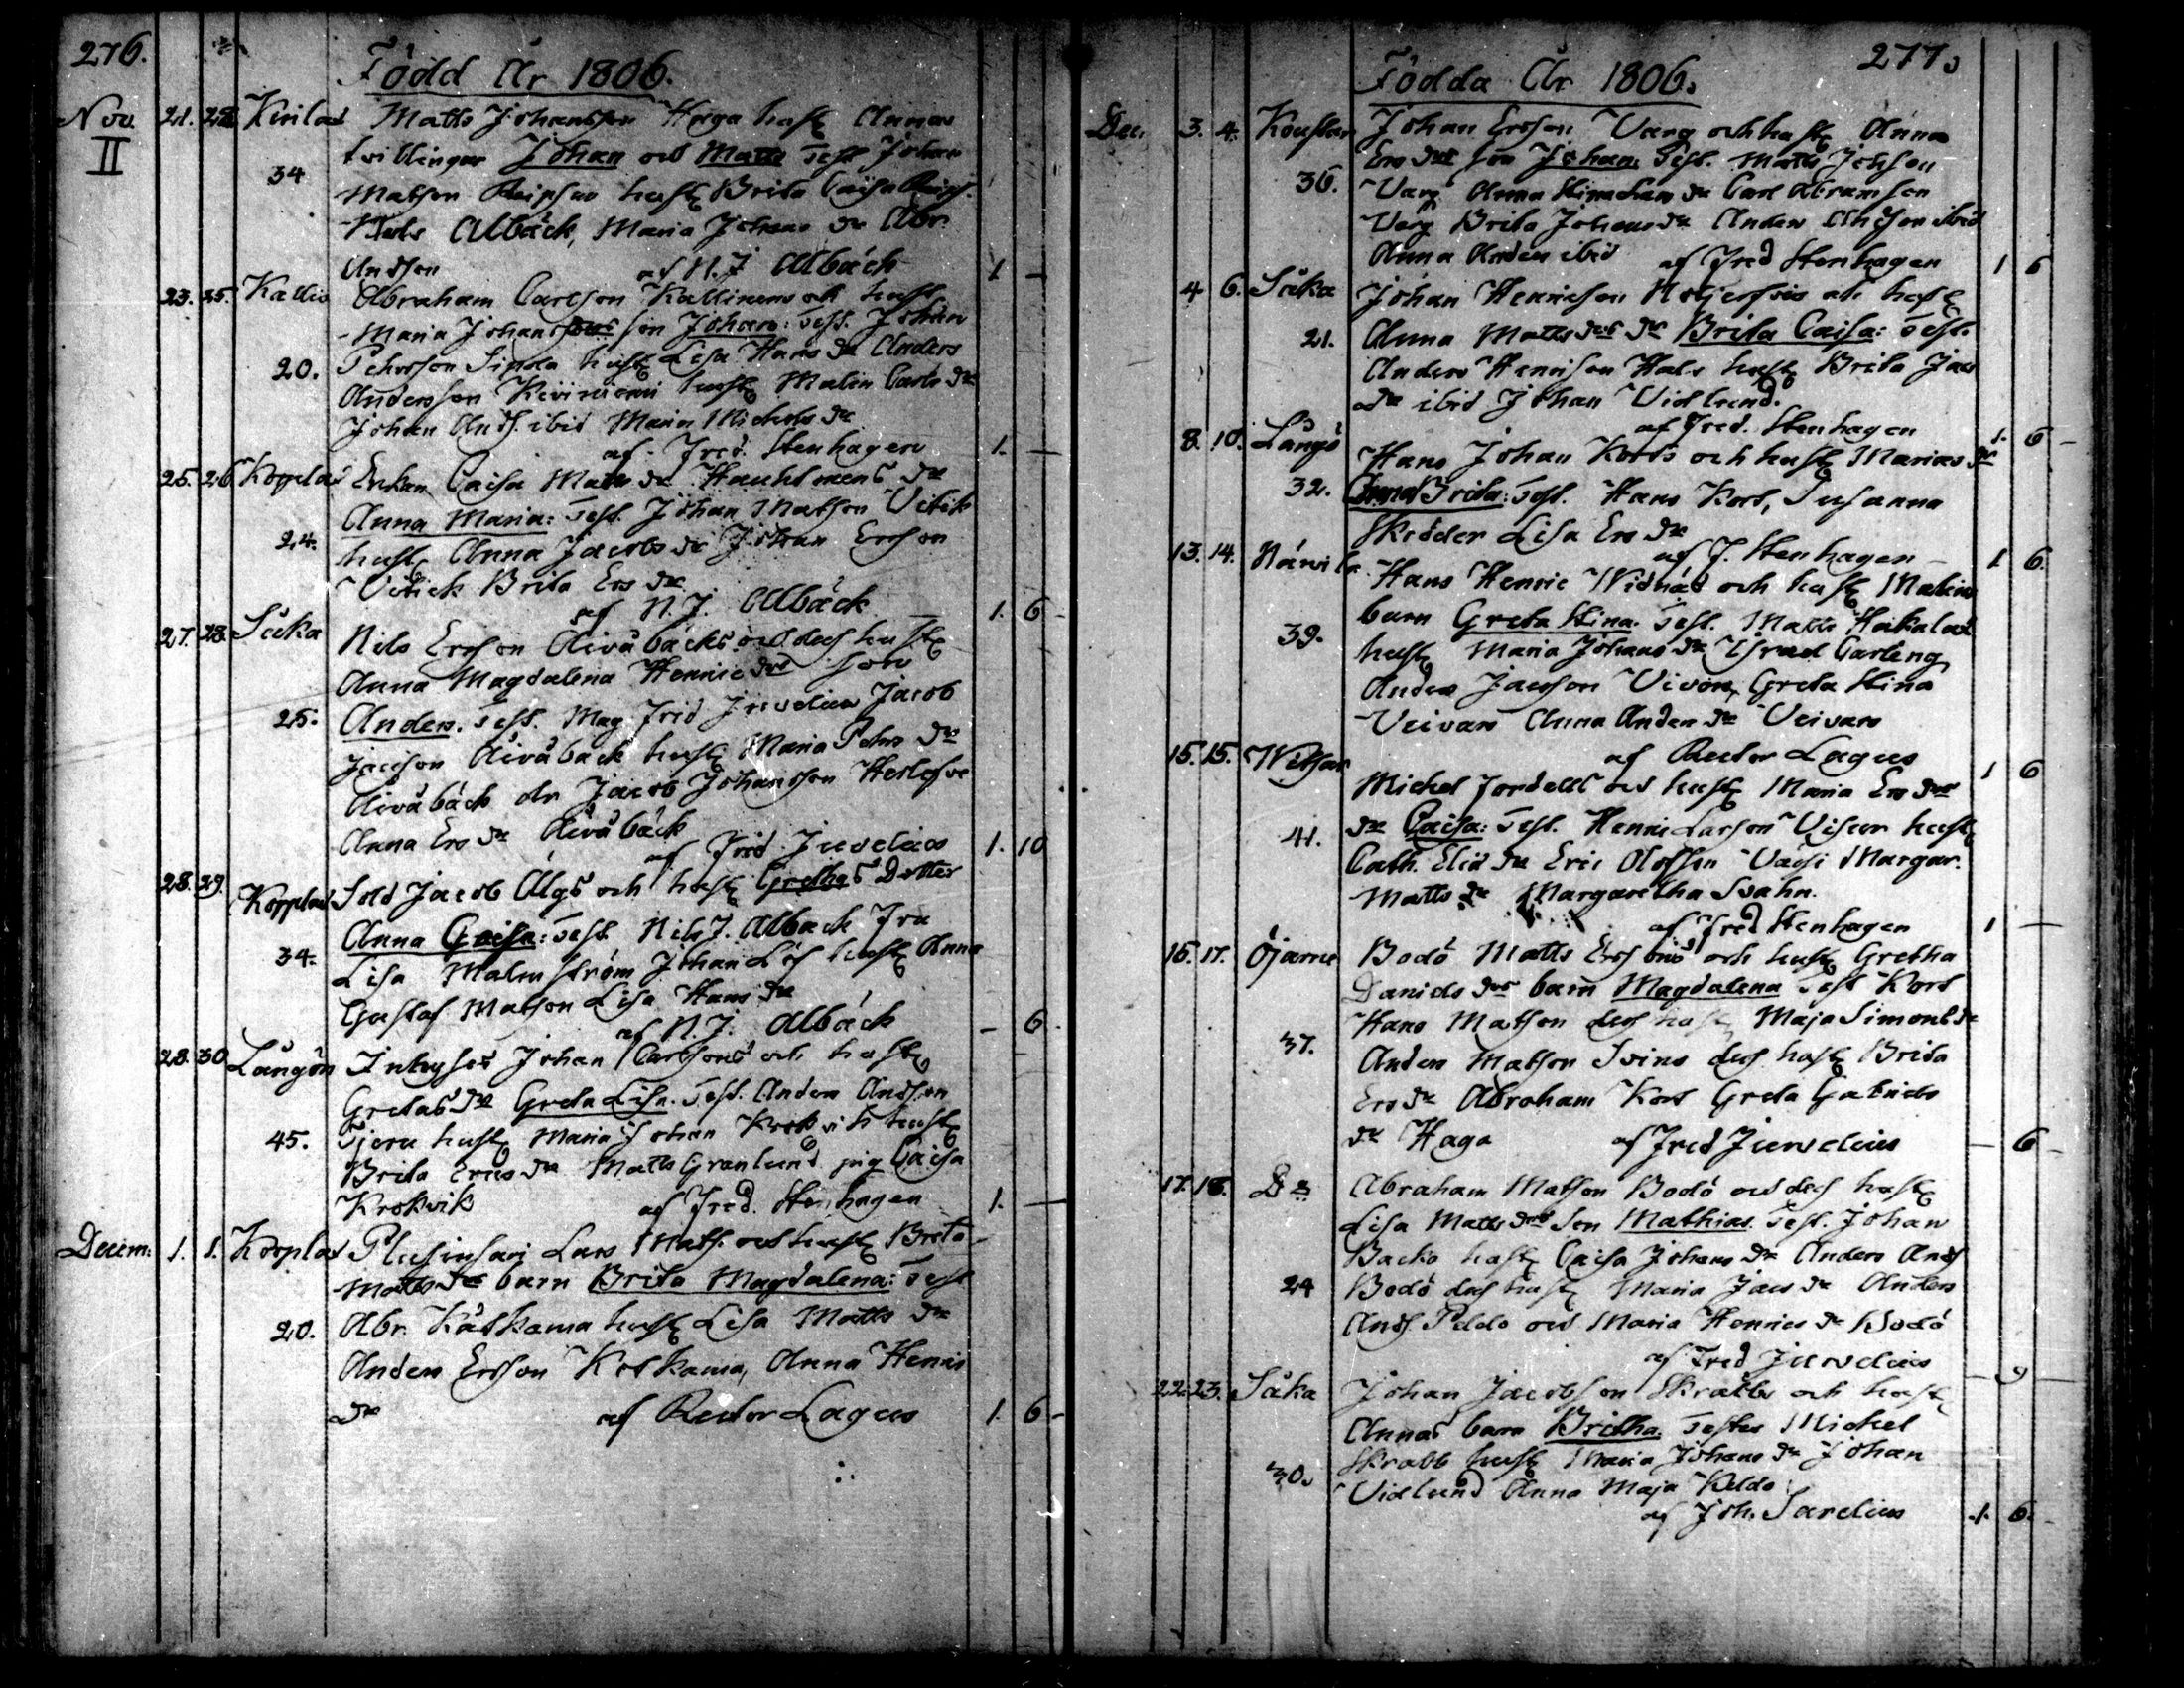 276.
Född År 1806.
Nov. 21. 22 Kirilax Matts Johansson Haga hust Annas
II tvillingar Johan och Matts Test Johan
34 Matson hust Brita Caisa
Albäck, Maria Johans dr Abr.
Andson af N. J. Albäck 1 —
23. 25. Kallis Abraham Carlson Kallinens och hust
Maria Johans son Johan: Test. Johan
20. Pehrsson Sipola hust Lisa Hans dr Anders
Andersson Kiviniemi hust Malin Carls dr
Johan Ands. ibid Maria Michels dr
af Fred. Stenhagen 1. —
25. 26 Korplax Enkan Caisa Matts dr dr
Anna Maria: Test. Johan Matson Vitick
24. hust Anna Jacobs dr Johan Ersson
Vitick Brita Ers dr
af N. J. Albäck 1. 6
27. 28. Såka Nils Ersson Åivåbacks och des hust
Anna Magdalena Henrics drs son
25. Anders. Test. Mag Frid Juvelius Jacob
Jacson Åivåback hust Maria Pehrs dr
Åivåbäck dr Jacob Johansson
Anna Ers dr Åivåbäck
af Frid. Juvelius 1. 10
28. 29. Korplax Sold Jacob Älgs och hust Grethas Dotter
Anna Caisa: Test Nils J. Albäck Fru
34. Lisa Malmström Johan hust Anna
Gustaf Matson Lisa Hans dr
af N. J. Albäck — 6
28. 30 Långön Inhyses Johan Carlsons och hust
Gretas dr Greta Lisa. Test. Anders Andson
45. hust Maria Johan Krokvik hust
Brita Erics dr Matts Granlund pig Caisa
Krokvik af Fred. Stenhagen 1. —
Decem: 1. 1. Korplax Lars Mats. och hust Brita
Matts drs barn Brita Magdalena: Test
20. Abr. Kåtkama hust Lisa Matts dr
Anders Ersson Kotkama, Anna Henrics
dr af Rector Lagus 1. 6

277.
Födda År 1806.
Dec. 3. 4. Johan Ersson Varg och hust Anna
Ers drs son Johan: Test. Matts Johson
36. Varg Anna Stina dr Carl Abramson
Varg Brita Johans dr Anders ibid
Anna Anders ibid af Fred Stenhagen 1 6
4 6. Såka Johan Henricson och hust
21. Anna Matts drs dr Brita Caisa: Test.
Anders Henrison Hals hust Brita Jacs
dr ibid Johan Vidlund.
af Fred. Stenhagen 1. 6
8. 10. Långö Hans Johan Korts och hust Marias dr
32. Anna Brita: Test. Hans Kort, Susanna
Skröder Lisa Ers dr
af F. Stenhagen 1 6.
13. 14. Närvila Hans Henric Widnäs och hust Malins
barn Greta Stina. Test. Matts Hakalax
39. hust Maria Johans dr Israel Carleng
Anders Jacsson Greta Stina
Veivars Anna Anders dr Veivars
af Rector Lagus 1 6
15. 15. Witsar Michel Jordell och hust Maria Ers drs
41. dr Caisa: Test. Henric Larson hust
Cath. Elis dr Eric Olofson Margar.
Matts dr Margaretha Svahn.
af Fred Stenhagen 1 —
16. 17. Öjarne Bodö Matts Erssons och hust Gretha
Daniels drs barn Magdalena Test Kort
Hans Matson des hust Maja Simons dr
37. Anders Matson des hust Brita
Ers dr Abraham Kort Greta Gabriels
dr Haga af Fred Juvelius — 6
17. 18. Do Abraham Matson Bodö och des hust
Lisa Matts drs son Mathias. Test. Johan
Backa hust Caisa Johans dr Anders Ands
24 Bodö des hust Maria Jacs dr Anders
Ands. och Maria Henrics dr Bodö
af Fred Juvelius — 9
22. 23. Såka Johan Jacobson Skrabb och hust
Annas barn Britha. Testes Michel
30. Skrabb hust Maria Johans dr Johan
Vidlund Anna Maja
af Joh. Sarelius 1. 6.